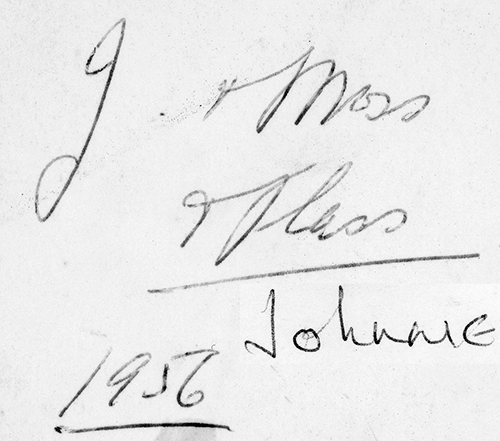 J + Moss
+ Flass
Johnnie
1956